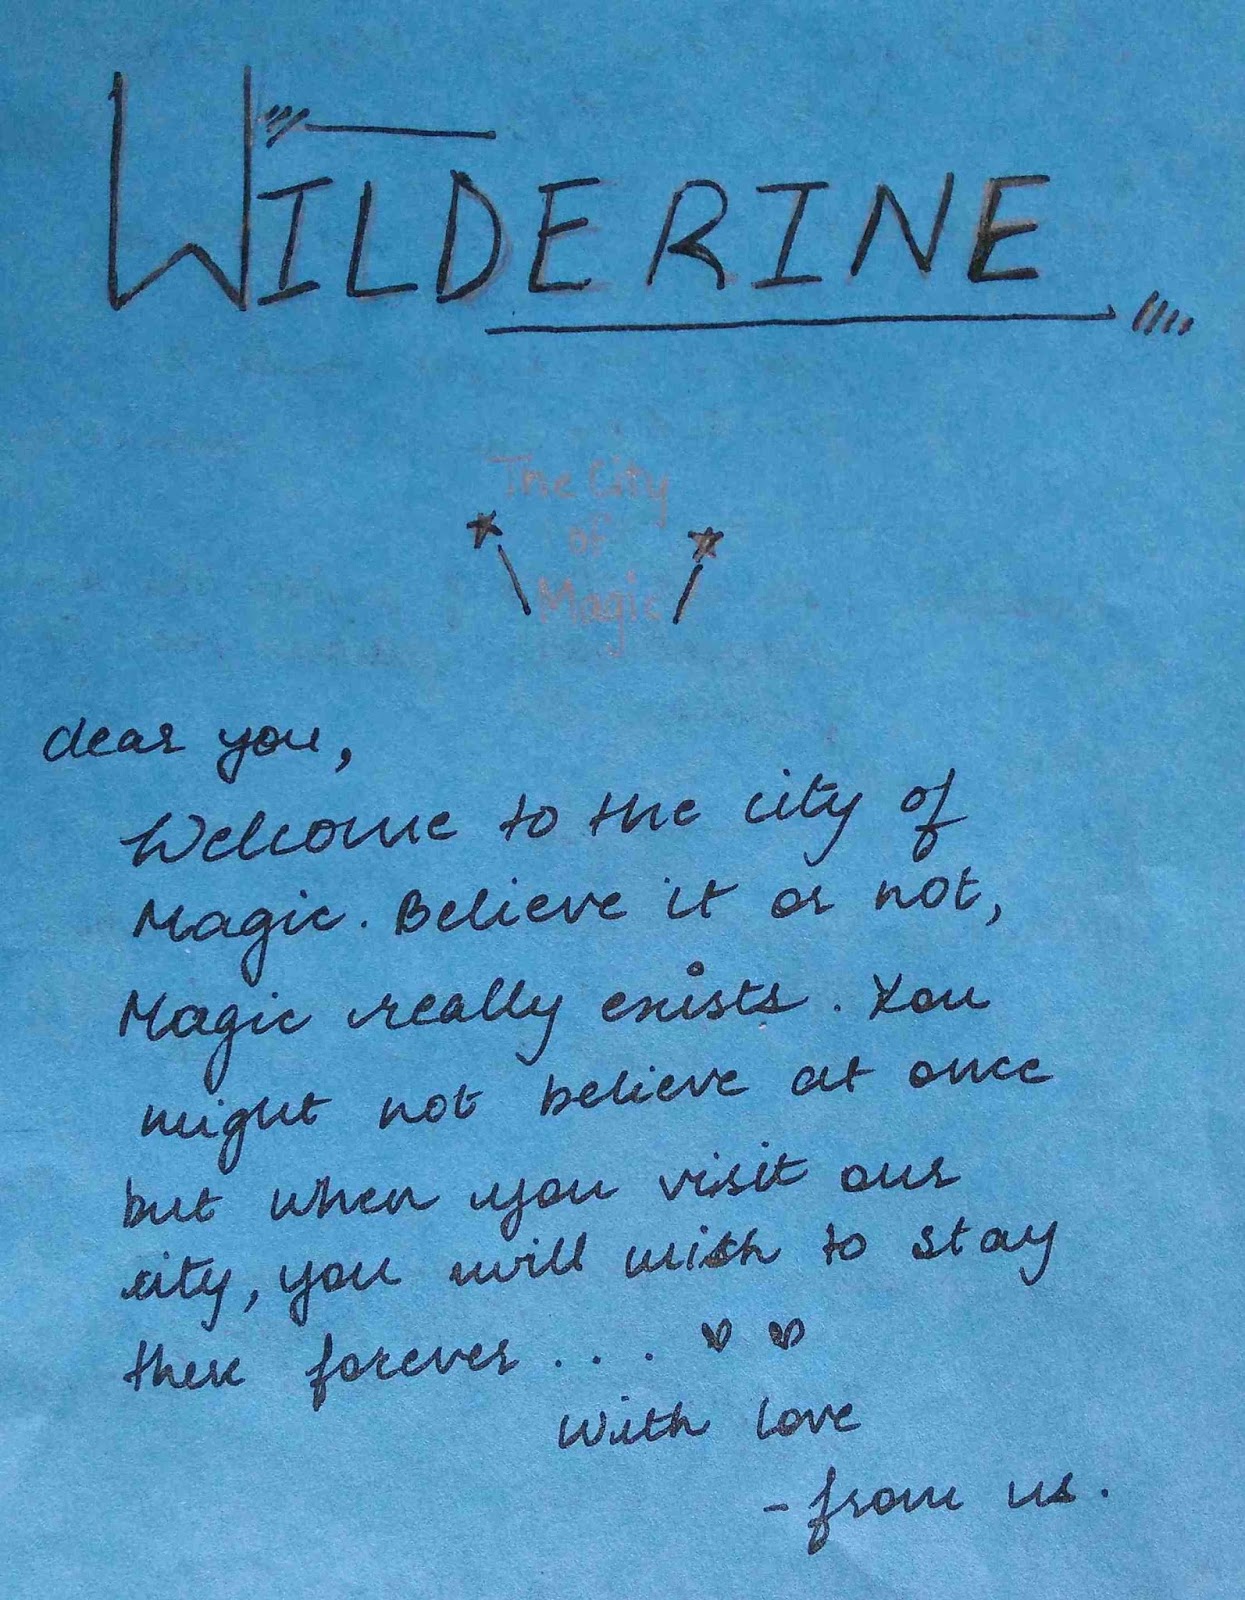 WILDERINE
The City
of
Magic
dear you,
Welcome to the city of
Magic. Believe it or not,
Magic really exists. You
might not believe at once
but when you visit our
city, you will wish to stay
there forever . . .
With love
- from us.